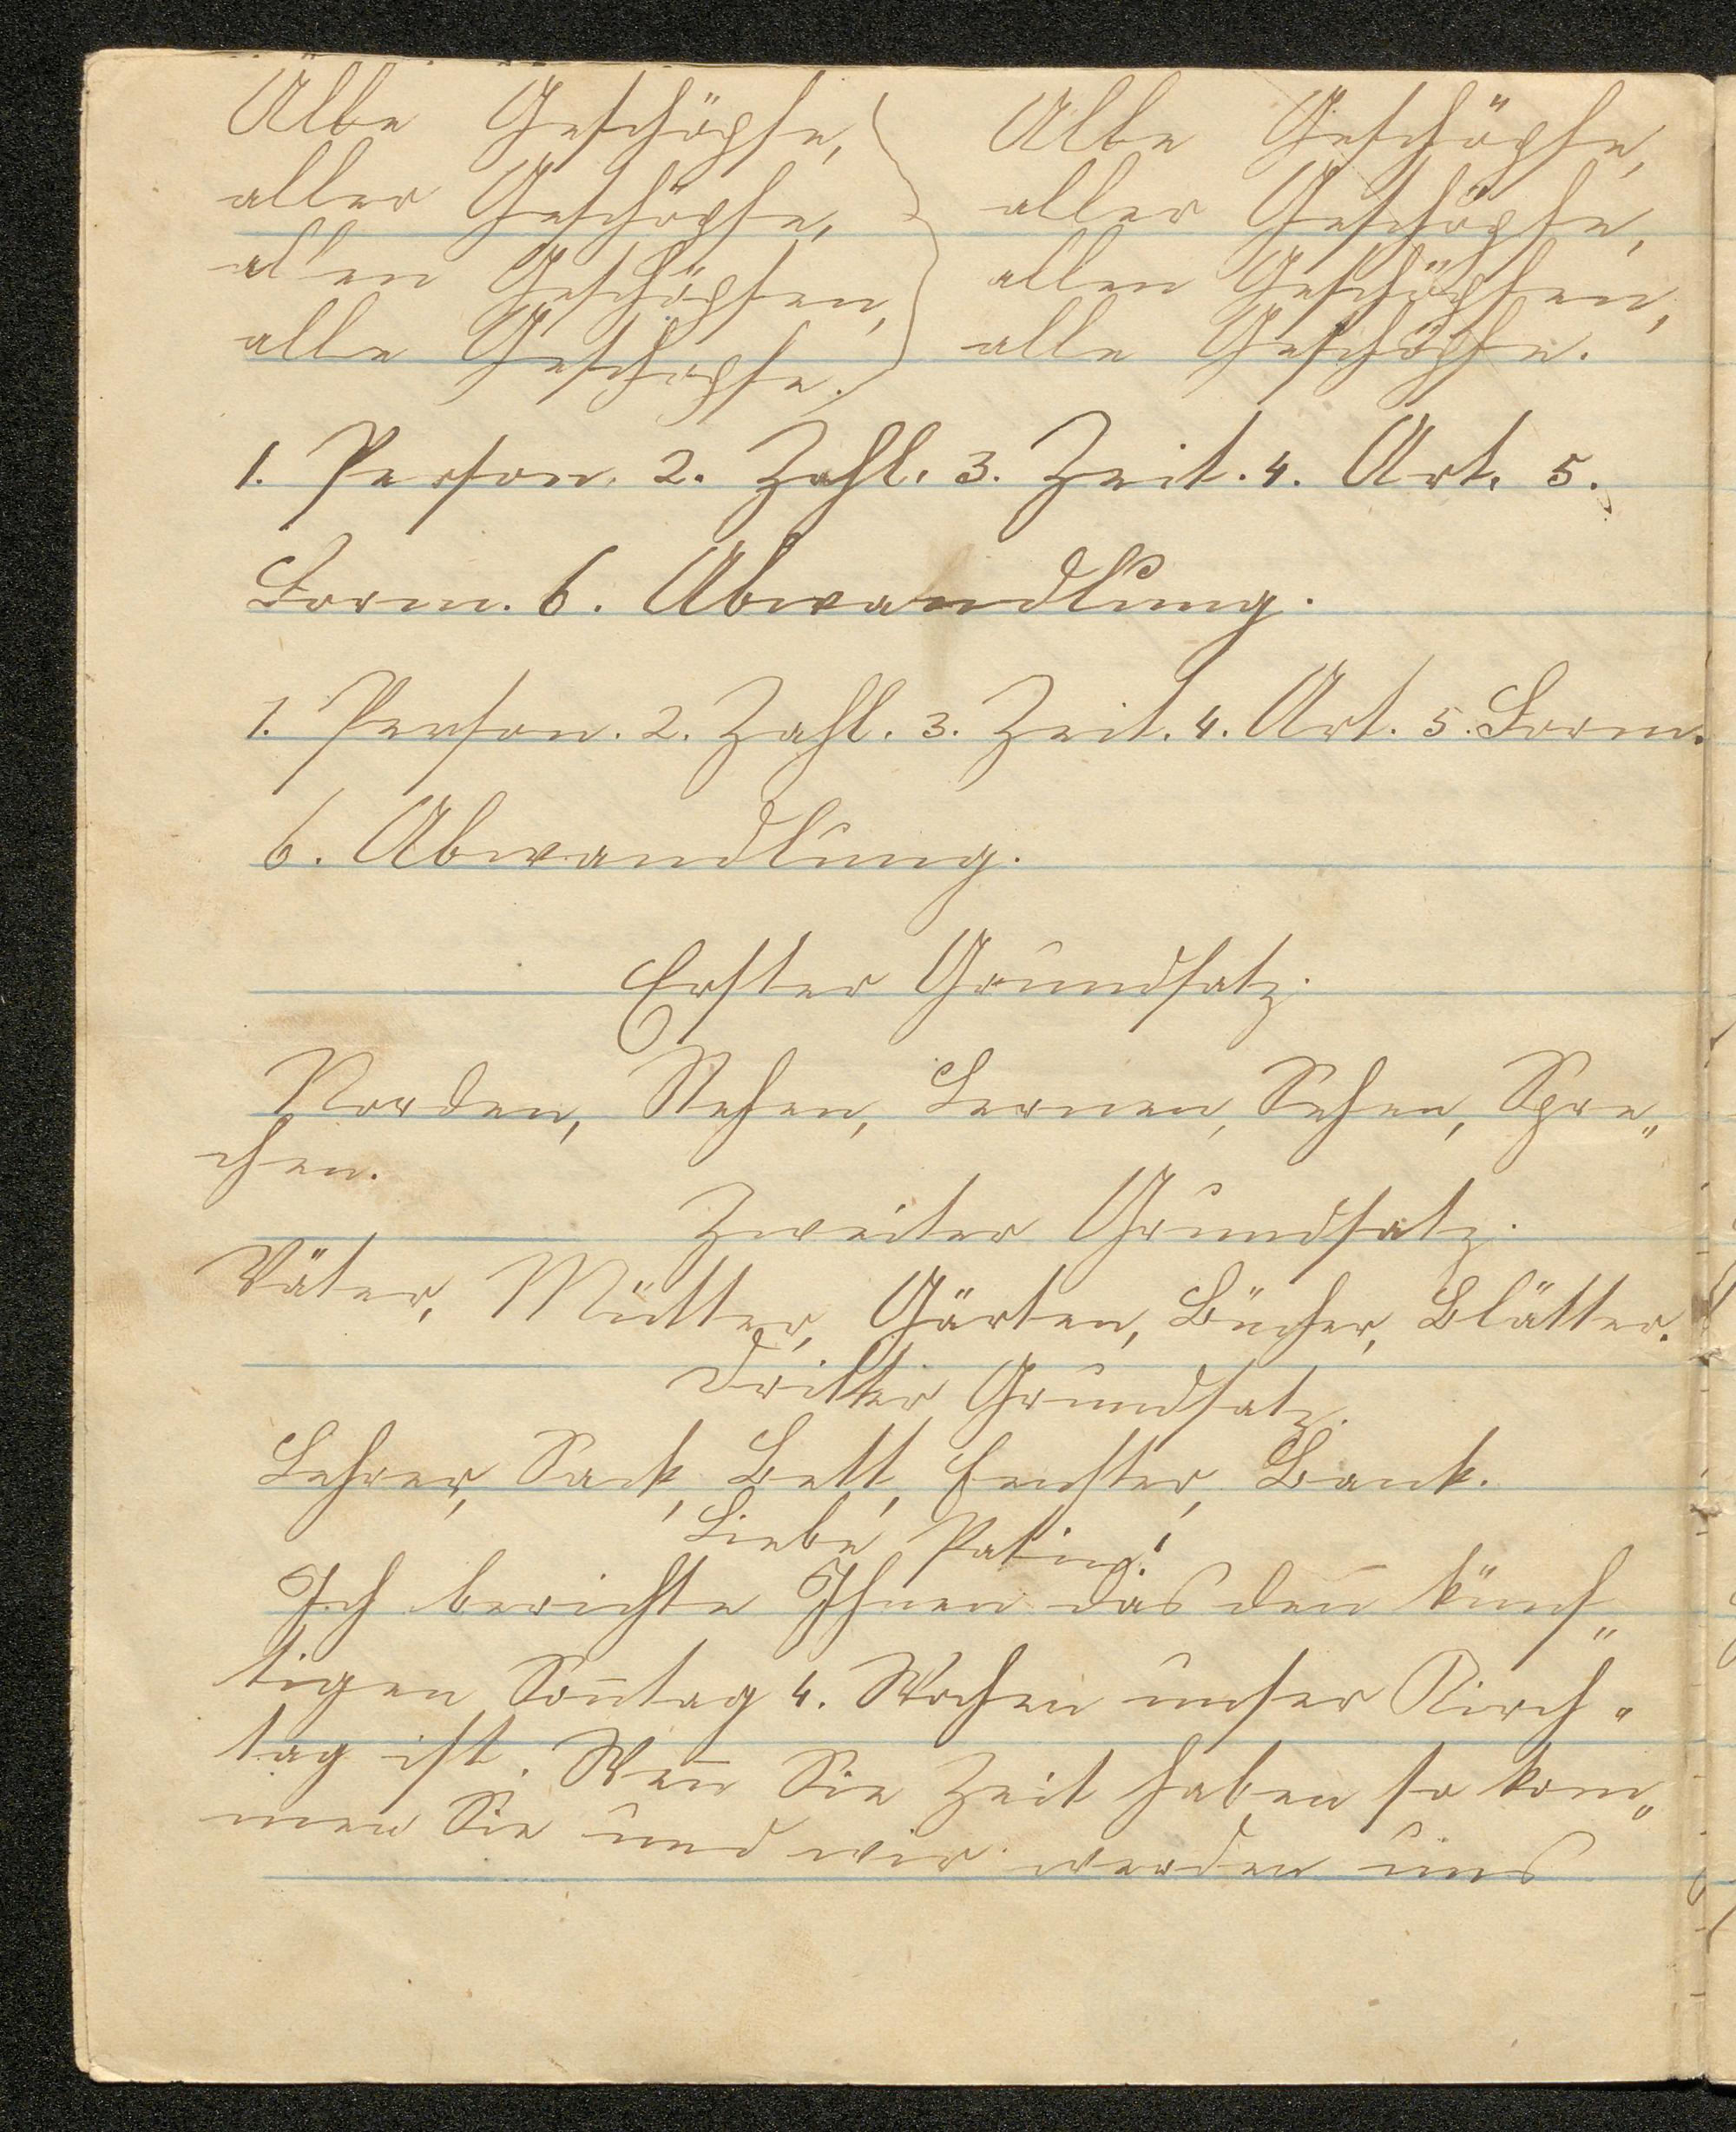 Alle Geschöpfe,
aller Geschöpfe,
allen Geschöpfen,
alle Geschöpfe.
Alle Geschöpfe,
aller Geschöpfe,
allen Geschöpfen,
alle Geschöpfe.
1. Person. 2. Zahl. 3. Zeit. 4. Art. 5.
Form. 6. Abwandlung.
1. Person. 2. Zahl. 3. Zeit. 4. Art. 5. Form.
6. Abwandlung.
Erster Grundsatz.
Norden, Stehen, Lernen, Sehen, Spre„
chen.
Zweiter Grundsatz.
Väter, Mütter, Gärten, Bücher, Blätter.
Dritter Grundsatz.
Lehrer, Sack, Bett, Fenster, Bank.
Liebe Patin!
Ich berichte Ihnen das den künf„
tigen Soñtag 4. Wochen unser Kirch„
tag ist. Weñ Sie Zeit haben so kom„
men Sie und wir werden uns